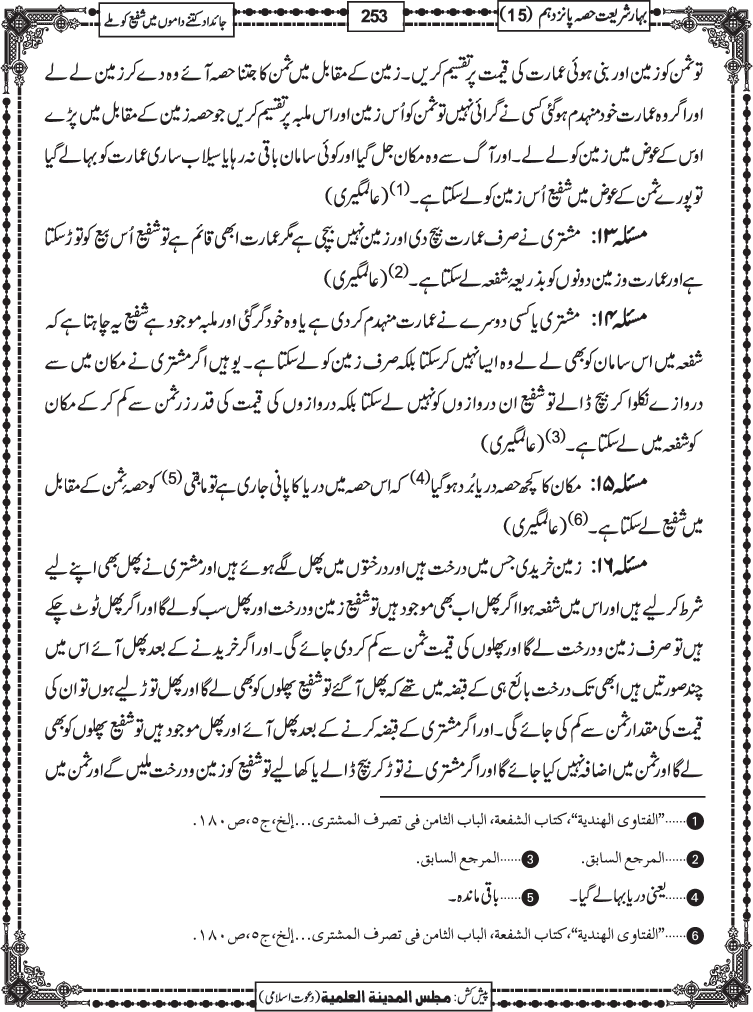 بہارِ شریعت حصہ پانزدہم (15)
253
جائداد کتنے داموں میں شفیع کو ملے
تو ثمن کو زمین اور بنی ہوئی عمارت کی قیمت پر تقسیم کریں۔ زمین کے مقابل میں ثمن کا جتنا حصہ آئے وہ دے کر زمین لے لے
اور اگر وہ عمارت خود منہدم ہوگئی کسی نے گرائی نہیں تو ثمن کو اُس زمین اور اس ملبہ پر تقسیم کریں جو حصہ زمین کے مقابل میں پڑے
اوس کے عوض میں زمین کو لے لے۔ اور آگ سے وہ مکان جل گیا اور کوئی سامان باقی نہ رہا یا سیلاب ساری عمارت کو بہا لے گیا
تو پورے ثمن کے عوض میں شفیع اُس زمین کو لے سکتا ہے۔(1) (عالمگیری)
مسئلہ ۱۳: مشتری نے صرف عمارت بیچ دی اور زمین نہیں بیچی ہے مگر عمارت ابھی قائم ہے تو شفیع اُس بیع کو توڑ سکتا
ہے اور عمارت و زمین دونوں کو بذریعۂ شفعہ لے سکتا ہے۔(2) (عالمگیری)
مسئلہ ۱۴: مشتری یا کسی دوسرے نے عمارت منہدم کر دی ہے یا وہ خود گر گئی اور ملبہ موجود ہے شفیع یہ چاہتا ہے کہ
شفعہ میں اس سامان کو بھی لے لے وہ ایسا نہیں کرسکتا بلکہ صرف زمین کو لے سکتا ہے۔ یو ہیں اگر مشتری نے مکان میں سے
دروازے نکلوا کر بیچ ڈالے تو شفیع ان دروازوں کو نہیں لے سکتا بلکہ دروازوں کی قیمت کی قدر زرِ ثمن سے کم کر کے مکان
کو شفعہ میں لے سکتا ہے۔(3) (عالمگیری)
مسئلہ ۱۵: مکان کا کچھ حصہ دریا بُرد ہوگیا(4) کہ اس حصہ میں دریا کا پانی جاری ہے تو مابقی(5) کو حصہ ثمن کے مقابل
میں شفیع لے سکتا ہے۔(6) (عالمگیری)
مسئلہ ۱۶: زمین خریدی جس میں درخت ہیں اور درختوں میں پھل لگے ہوئے ہیں اور مشتری نے پھل بھی اپنے لیے
شرط کر لیے ہیں اور اس میں شفعہ ہوا اگر پھل اب بھی موجود ہیں تو شفیع زمین و درخت اور پھل سب کو لے گا اور اگر پھل ٹوٹ چکے
ہیں تو صرف زمین و درخت لے گا اور پھلوں کی قیمت ثمن سے کم کر دی جائے گی۔ اور اگر خریدنے کے بعد پھل آئے اس میں
چند صورتیں ہیں ابھی تک درخت بائع ہی کے قبضہ میں تھے کہ پھل آگئے تو شفیع پھلوں کو بھی لے گا اور پھل توڑ لیے ہوں تو ان کی
قیمت کی مقدار ثمن سے کم کی جائے گی۔ اور اگر مشتری کے قبضہ کرنے کے بعد پھل آئے اور پھل موجود ہیں تو شفیع پھلوں کو بھی
لے گا اور ثمن میں اضافہ نہیں کیا جائے گا اور اگر مشتری نے توڑ کر بیچ ڈالے یا کھا لیے تو شفیع کو زمین و درخت ملیں گے اور ثمن میں
1 ......"الفتاوی الهندیة"، کتاب الشفعة، الباب الثامن فی تصرف المشتری...إلخ، ج٥، ص١٨٠.
2 ......المرجع السابق. 3 ......المرجع السابق.
4 ......یعنی دریا بہالے گیا۔ 5 ......باقی ماندہ۔
6 ......"الفتاوی الهندیة"، کتاب الشفعة، الباب الثامن فی تصرف المشتری...إلخ، ج٥، ص١٨٠.
پیش کش: مجلس المدینۃ العلمیۃ (دعوت اسلامی)